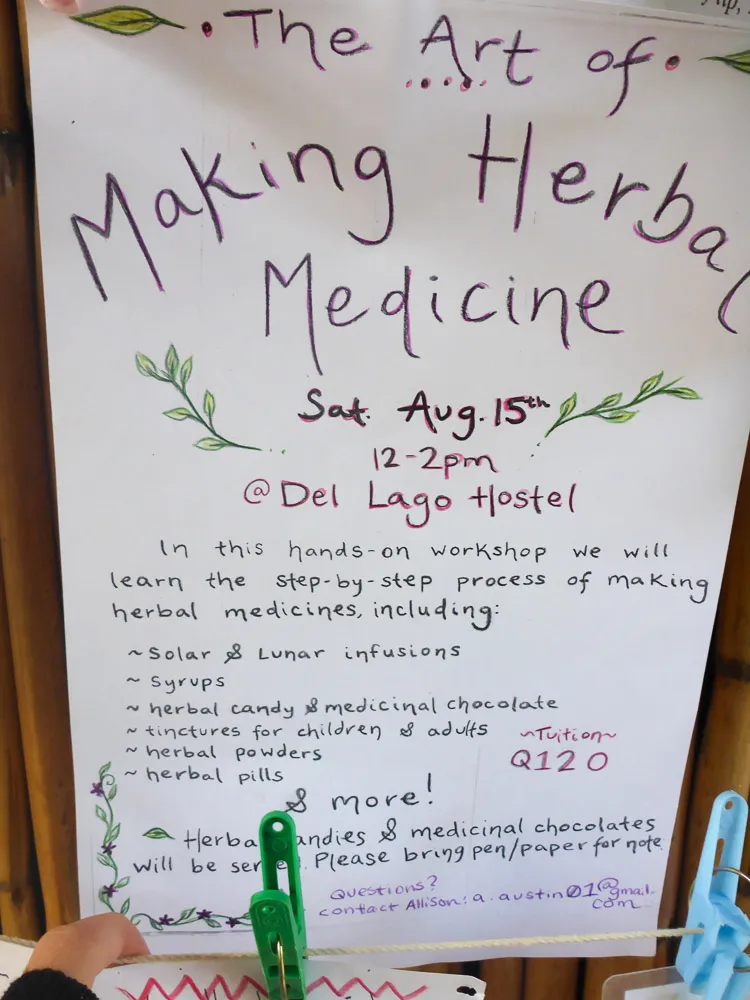 The Art of
Making Herbal
Medicine
Sat. Aug. 15th
12-2pm
@ Del Lago Hostel
In this hands-on workshop we will
learn the step-by-step process of making
herbal medicines, including:
~ Solar & Lunar infusions
~ syrups
~ herbal candy & medicinal chocolate
~ tinctures for children & adults
~ herbal powders
~ herbal pills
~Tuition~
Q120
& more!
Herba andies & medicinal chocolates
will be serve. Please bring pen/paper for note
Questions?
contact Allison: a.austin01@gmail.
com